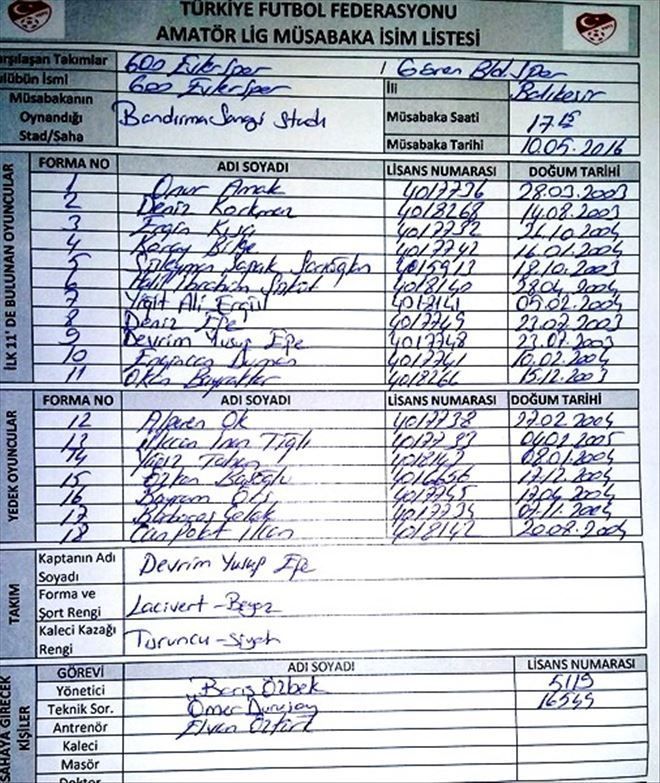 TÜRKİYE FUTBOL FEDERASYONU
AMATÖR LİG MÜSABAKA İSİM LİSTESİ
arşılaşan Takımlar 600 Evler Spor / Gönen Bld Spor
ulübün İsmi 600 Evler Spor İli Balıkesir
Müsabakanın Oynandığı Stad/Saha Bandırma Sangi Stadı Müsabaka Saati 17 15
Müsabaka Tarihi 10.05.2016
İLK 11' DE BULUNAN OYUNCULAR
FORMA NO ADI SOYADI LİSANS NUMARASI DOĞUM TARİHİ
1 Onur Amak 4017736 28.03.2003
2 Deniz Korkmaz 4018268 14.08.2003
3 Engin Kışçı 4017732 21.10.2004
4 Koray Bilge 4017742 16.01.2004
5 Süleyman 4015913 18.10.2003
6 Halil İbrahim 4018140 28.04.2004
7 Yiğit Ali Ergül 4018141 05.02.2004
8 Deniz Efe 4017749 23.07.2003
9 Devrim Yusuf Efe 4017748 23.07.2003
10 Engincan Duman 4017741 10.02.2004
11 Okan Bayraktar 4018266 15.12.2003
YEDEK OYUNCULAR
FORMA NO ADI SOYADI LİSANS NUMARASI DOĞUM TARİHİ
12 Alperen Ok 4017738 27.02.2004
13 İnan Tığlı 4017737 04.02.2005
14 Yiğit 4018143 08.01.2004
15 Özkan 4016656 17.12.2004
16 Bayram 4017745 17.04.2004
17 4017734 07.11.2004
18 Can Polat İlhan 4018142 20.08.2004
TAKIM
Kaptanın Adı Soyadı Devrim Yusuf Efe
Forma ve Şort Rengi Lacivert - Beyaz
Kaleci Kazağı Rengi Turuncu - Siyah
SAHAYA GİRECEK KİŞİLER
GÖREVİ ADI SOYADI LİSANS NUMARASI
Yönetici Barış Özbek 5119
Teknik Sor. Ömer Durusoy 16549
Antrenör Elvan Öztürk
Kaleci
Masör
Doktor